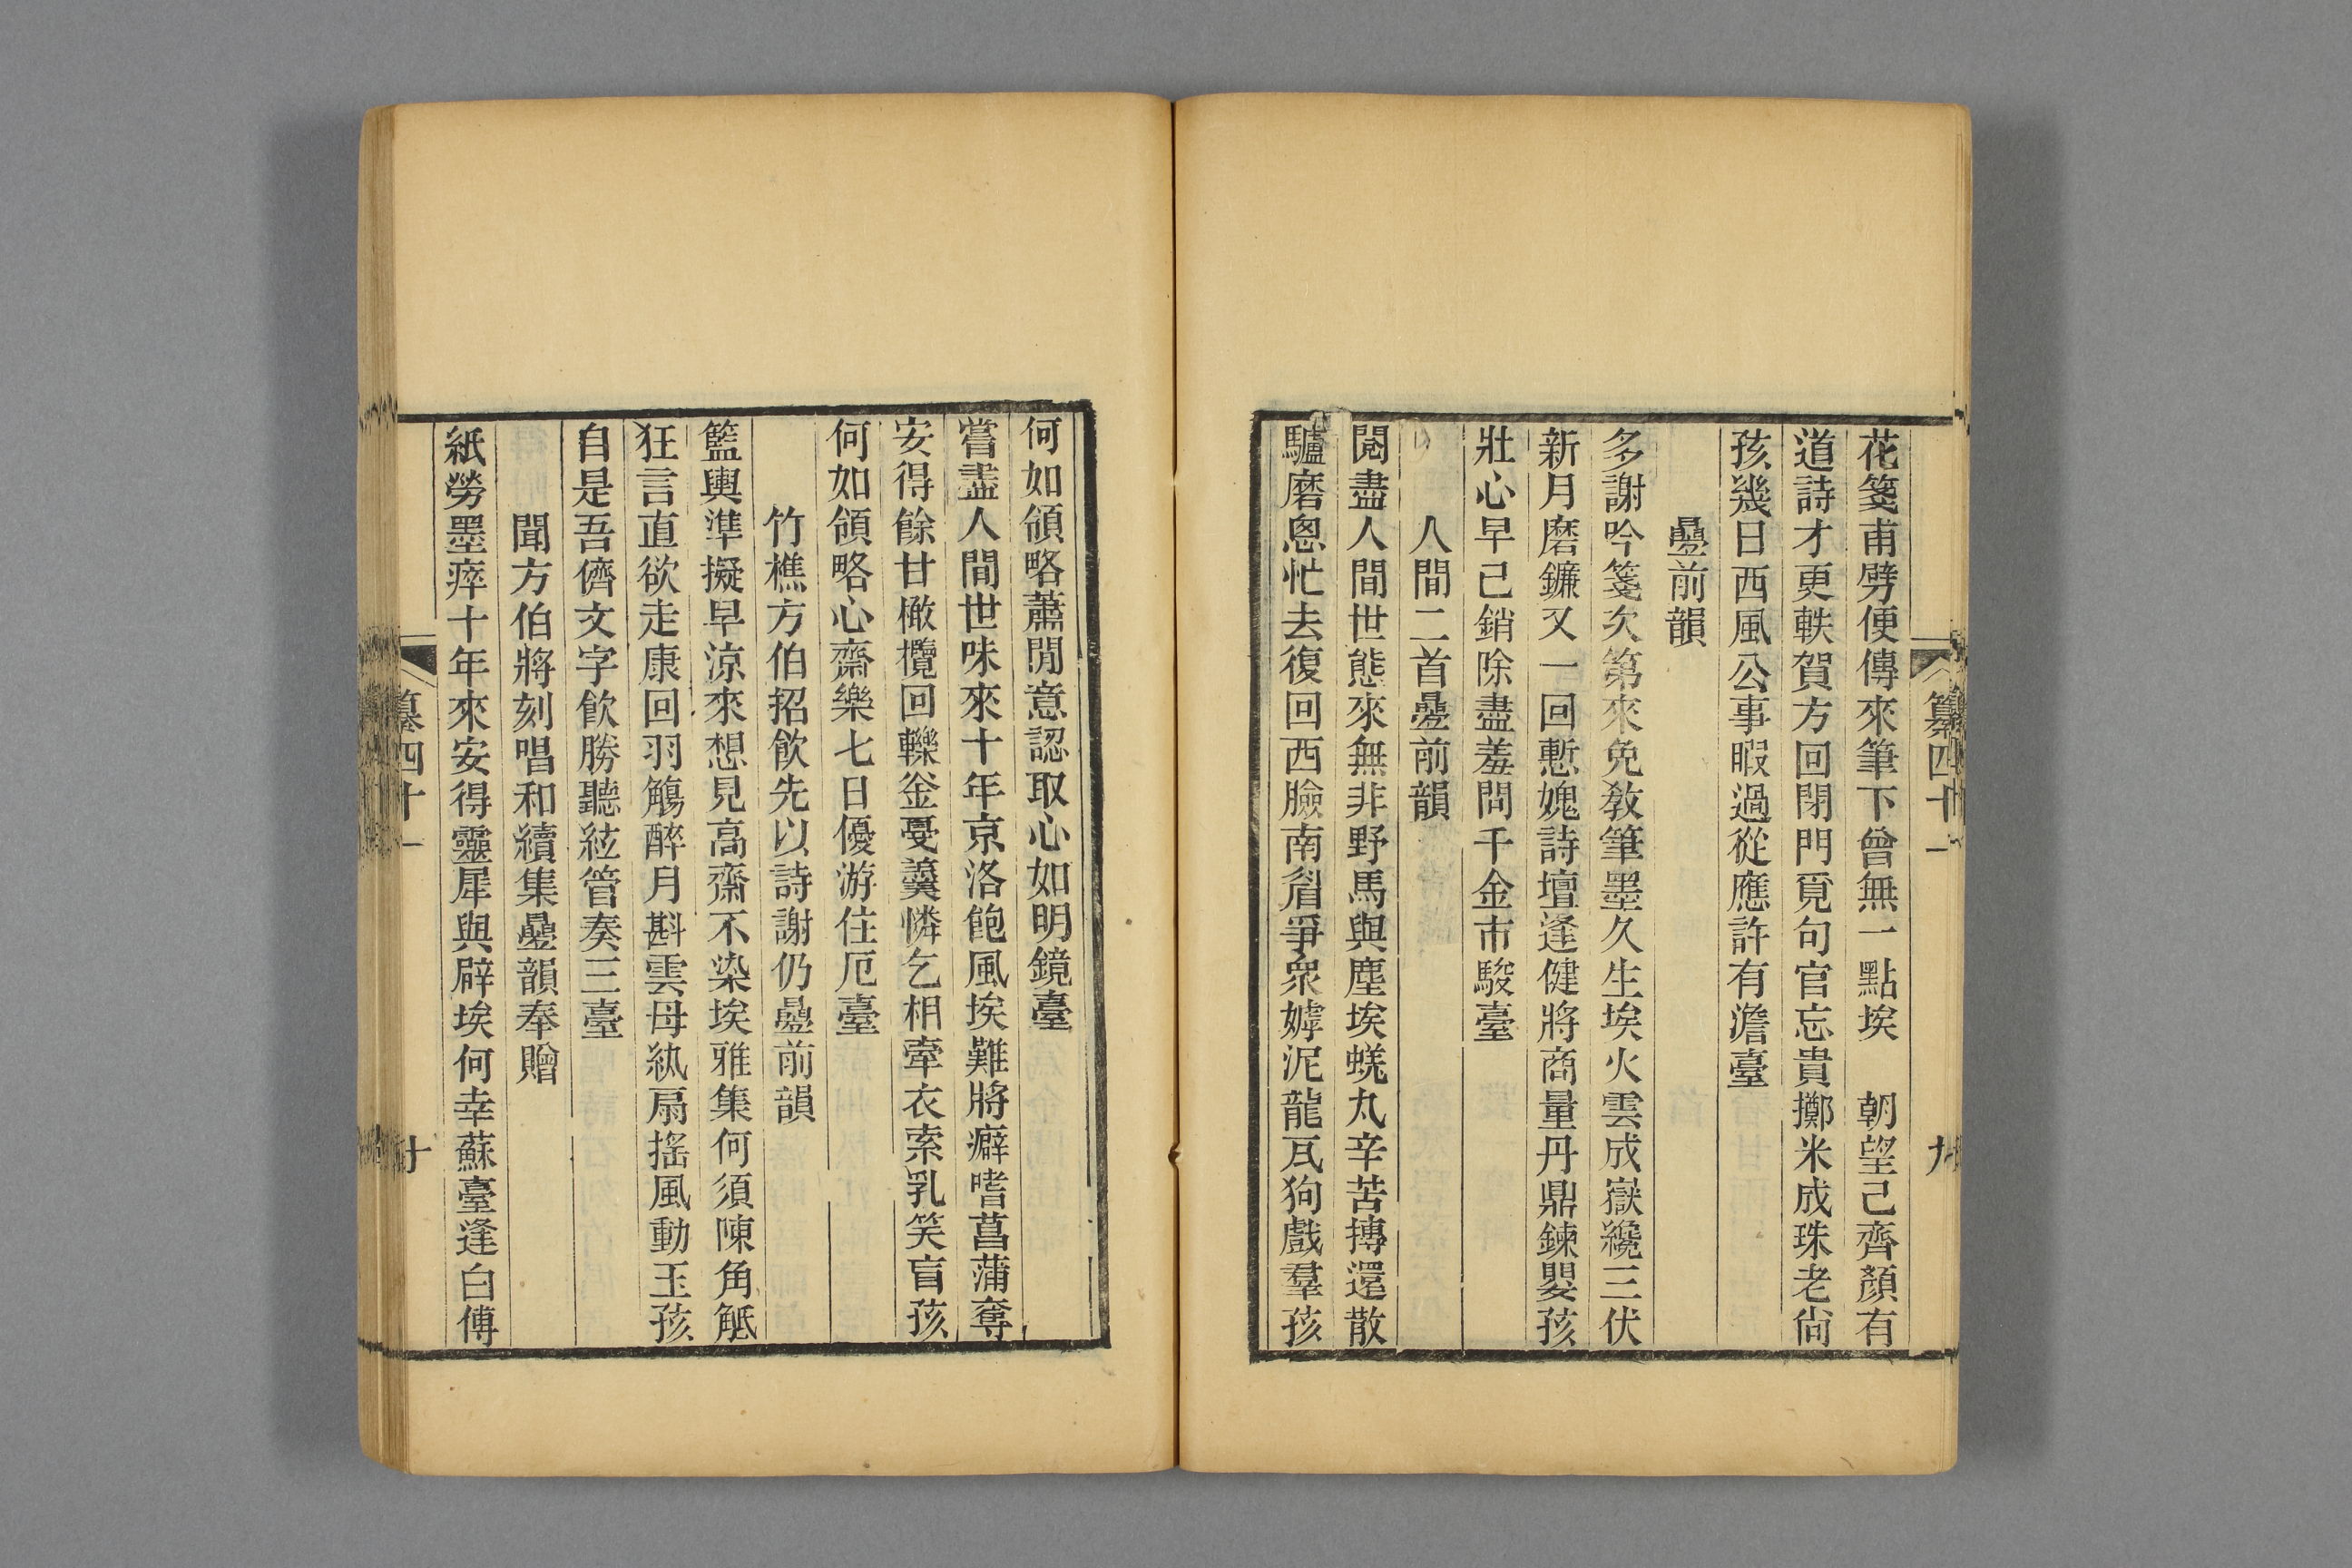 花箋甫劈便傳來筆下曾無一點埃　朝望己齊顏有
道詩才更軼賀方回閉門覓句官忘貴擲米成珠老尙
孩幾日西風公事暇過從應許有澹臺
疉前韻
多謝吟箋次第來免敎筆墨久生埃火雲成嶽纔三伏
新月磨鐮又一回慙媿詩壇逢健將商量丹鼎鍊嬰孩
壯心早己銷除盡羞問千金市駿臺
人間二首疉前韻
閱盡人間世態來無非野馬與塵埃蜣丸辛苦摶還散
驢磨悤忙去復回西臉南眉爭衆嫭泥龍瓦狗戲羣孩
纂四十一
九
何如領略蕭閒意認取心如明鏡臺
嘗盡人間世味來十年京洛飽風埃難將癖嗜菖蒲奪
安得餘甘橄欖回轢釜戛羹憐乞相牽衣索乳笑盲孩
何如領略心齋樂七日優游住厄臺
竹樵方伯招飮先以詩謝仍疉前韻
籃輿準擬早涼來想見高齋不染埃雅集何須陳角觝
狂言直欲走康回羽觴醉月斟雲母紈扇搖風動玉孩
自是吾儕文字飮勝聽絃管奏三臺
聞方伯將刻唱和續集疉韻奉贈
紙勞墨瘁十年來安得靈犀與辟埃何幸蘇臺逢白傅
纂四十一
十